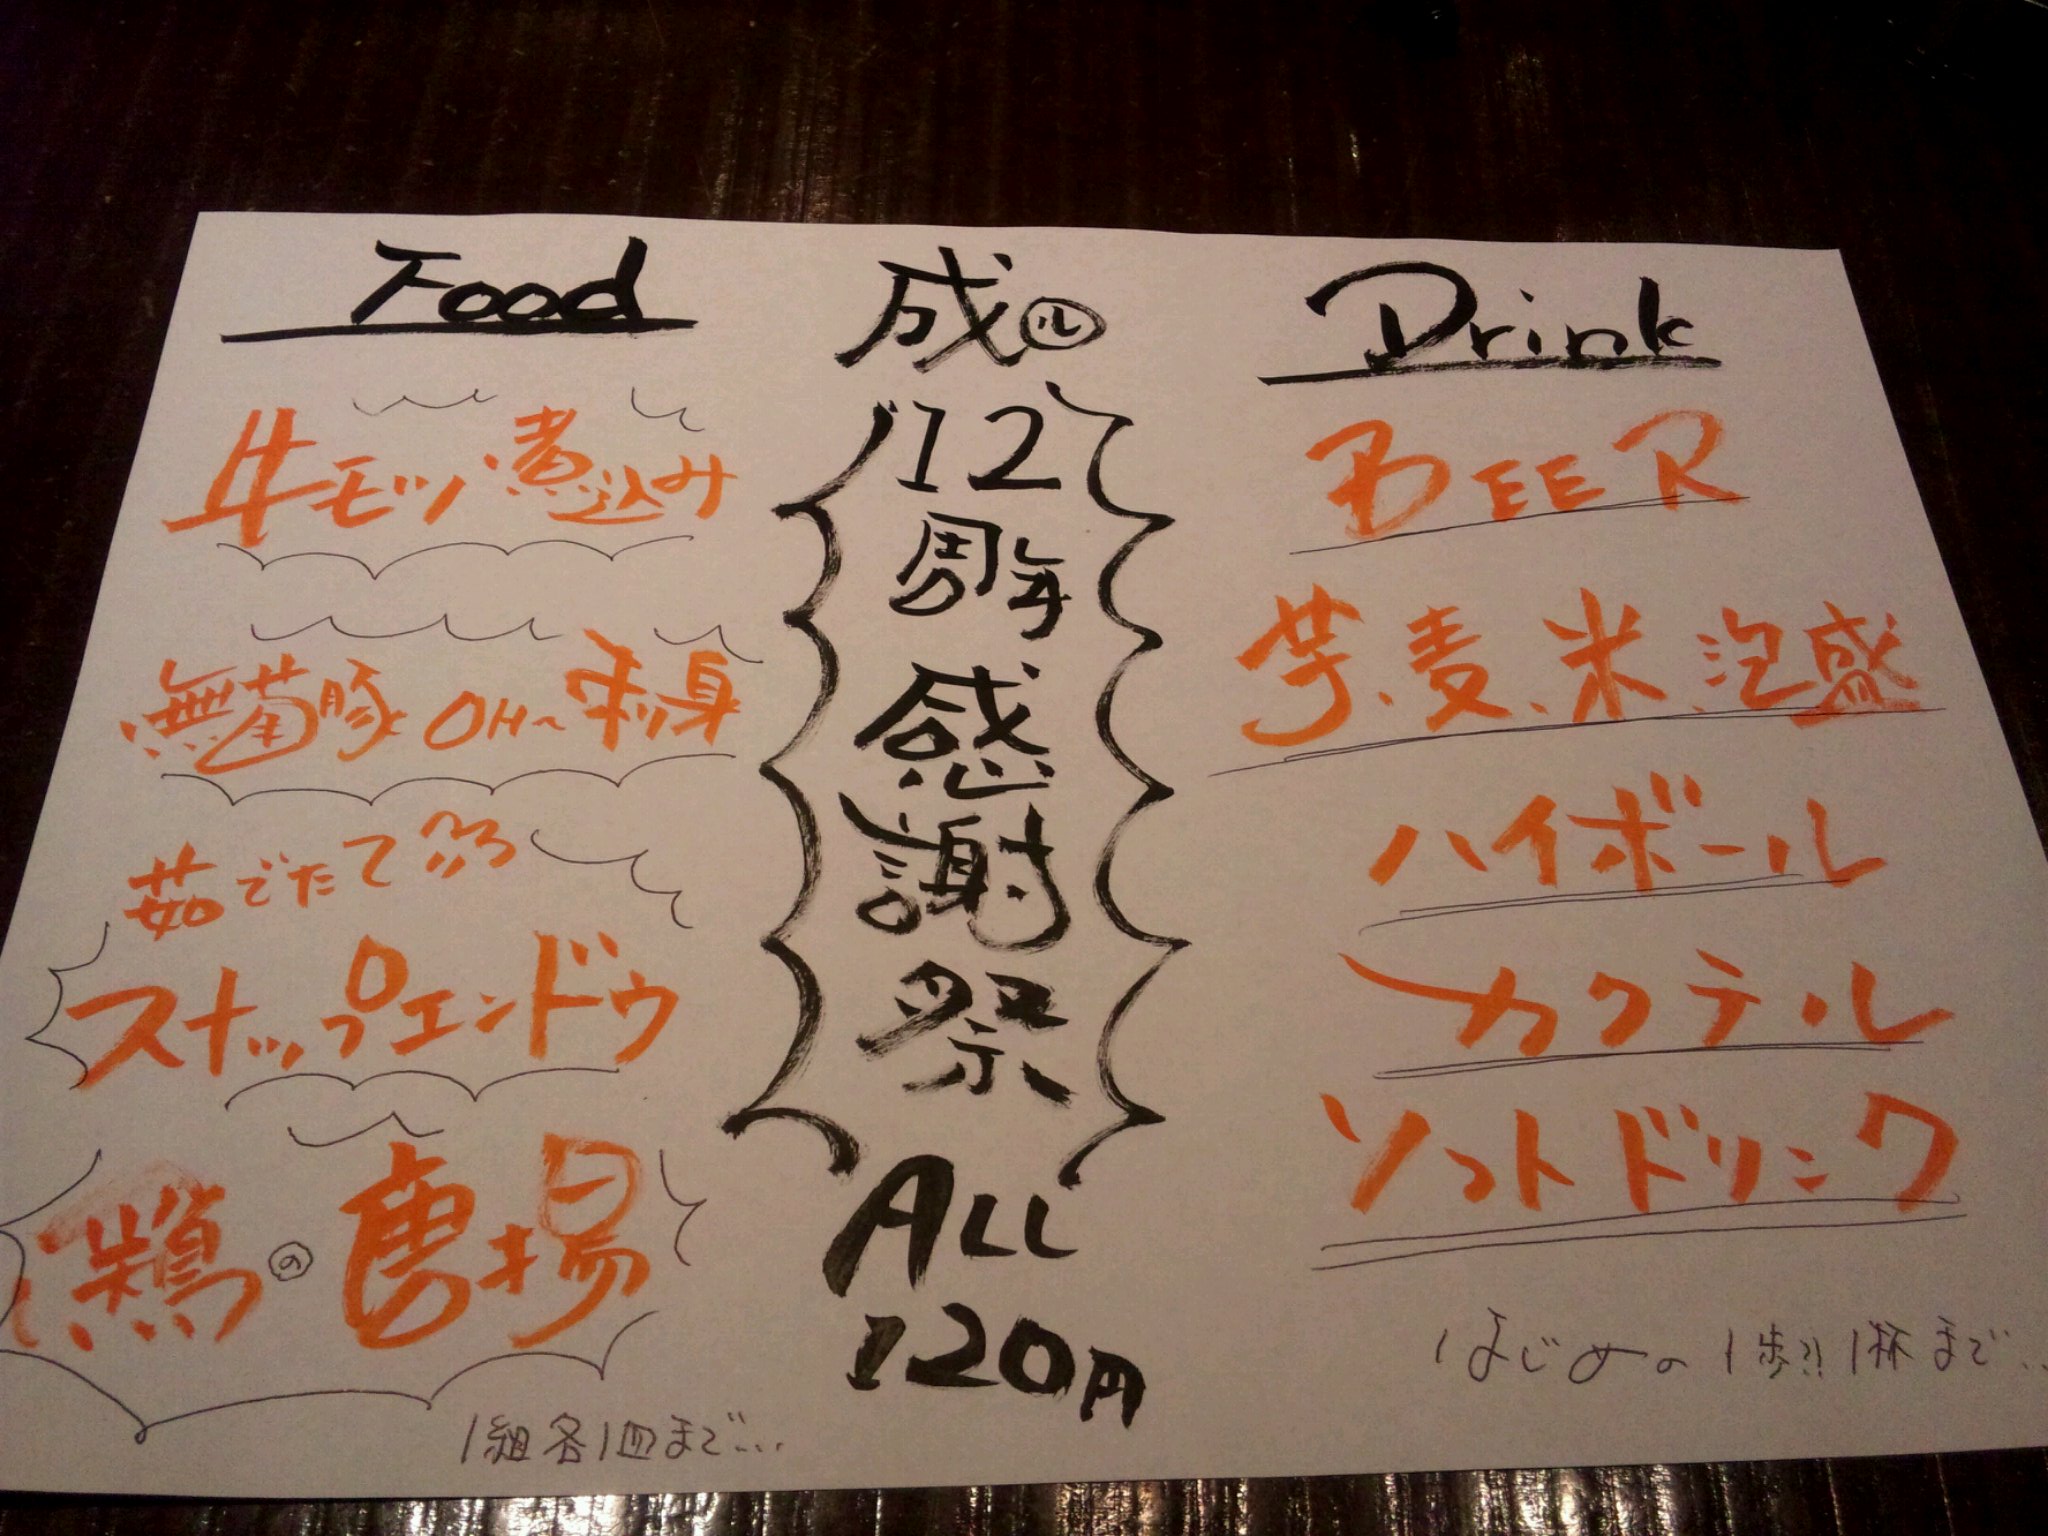 Food
牛モツ煮込み
無菌豚 OH~ 刺身
茹でたて
スナップエンドウ
の
1組各1皿まで...
成ル
12
周年
感
謝
祭
ALL
120円
Drink
BEER
芋、麦、米、泡盛
ハイボール
カクテル
ソフトドリンク
はじめの1歩!! 1杯まで...